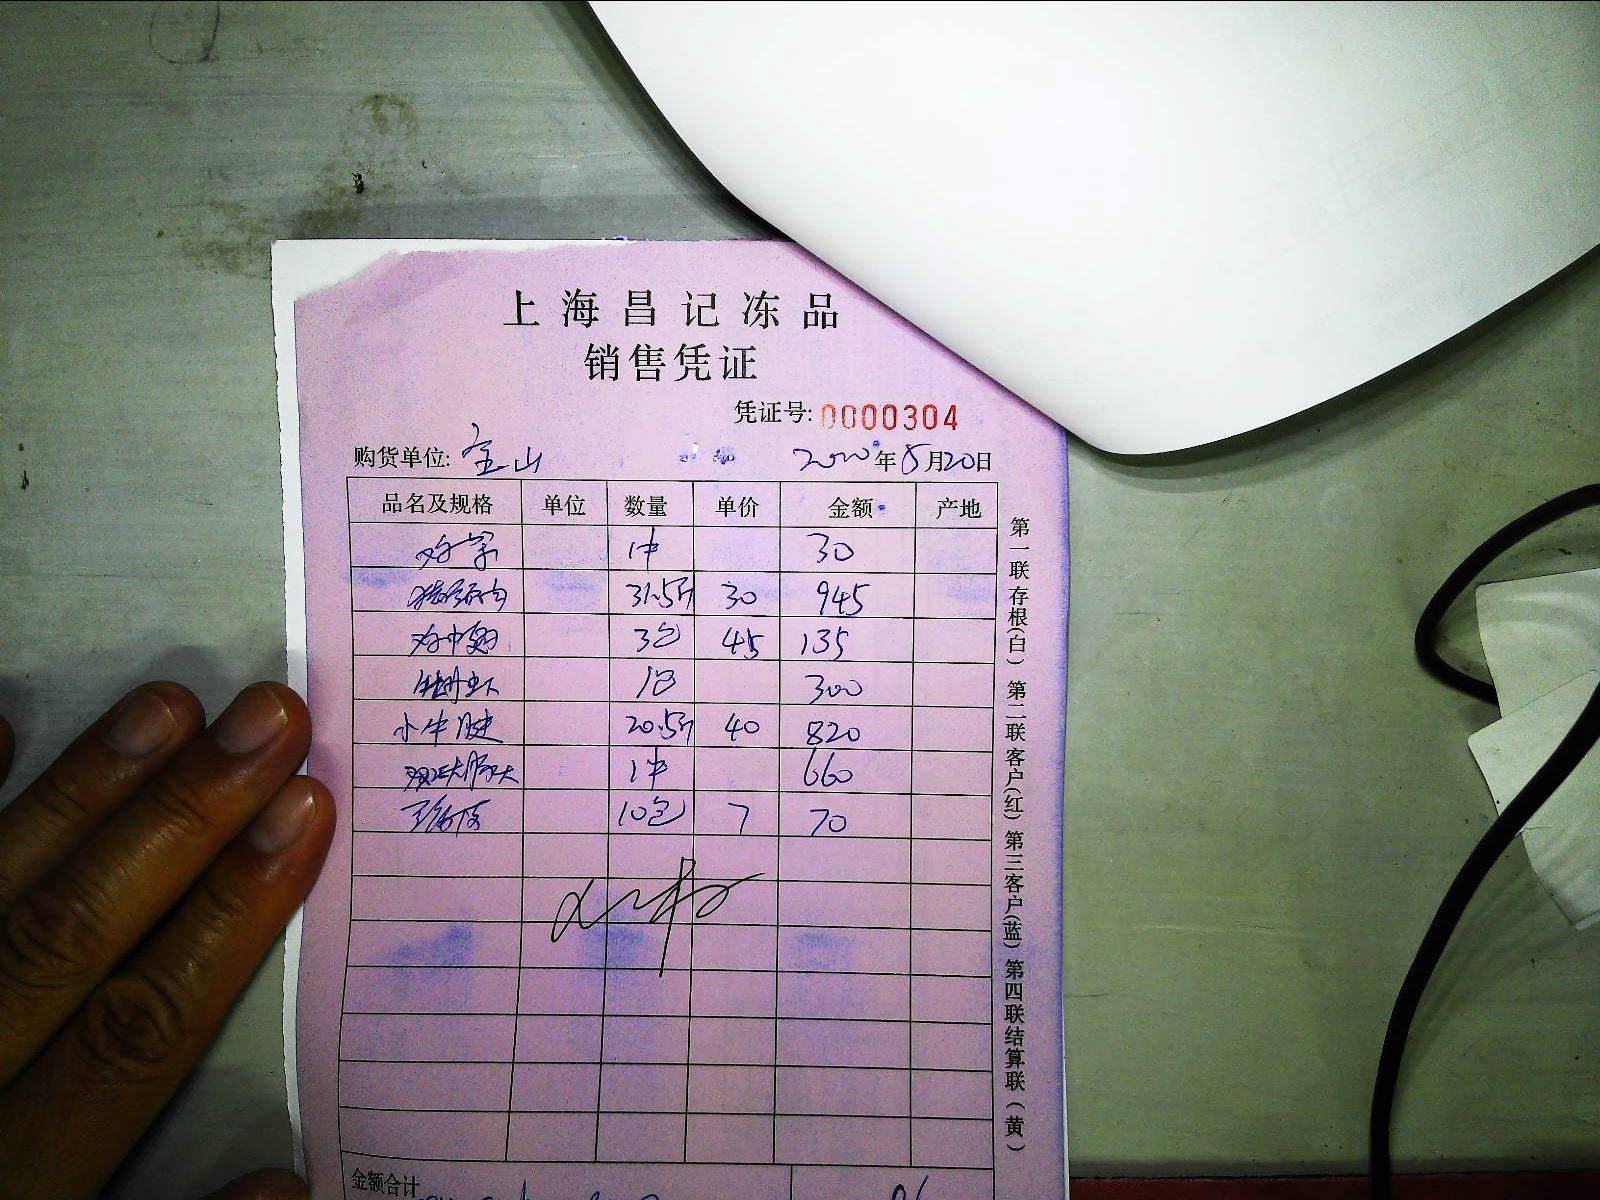 上海昌记冻品
销售凭证
凭证号: 0000304
购货单位: 宝山 2020年8月20日
品名及规格 单位 数量 单价 金额 产地
1件 30
31.5斤 30 945
鸡中翅 3包 45 135
牡丹虾 1包 300
小牛腱 20.5斤 40 820
1件 660
10包 7 70
金额合计
第一联存根(白) 第二联客户(红) 第三客户(蓝) 第四联结算联(黄)